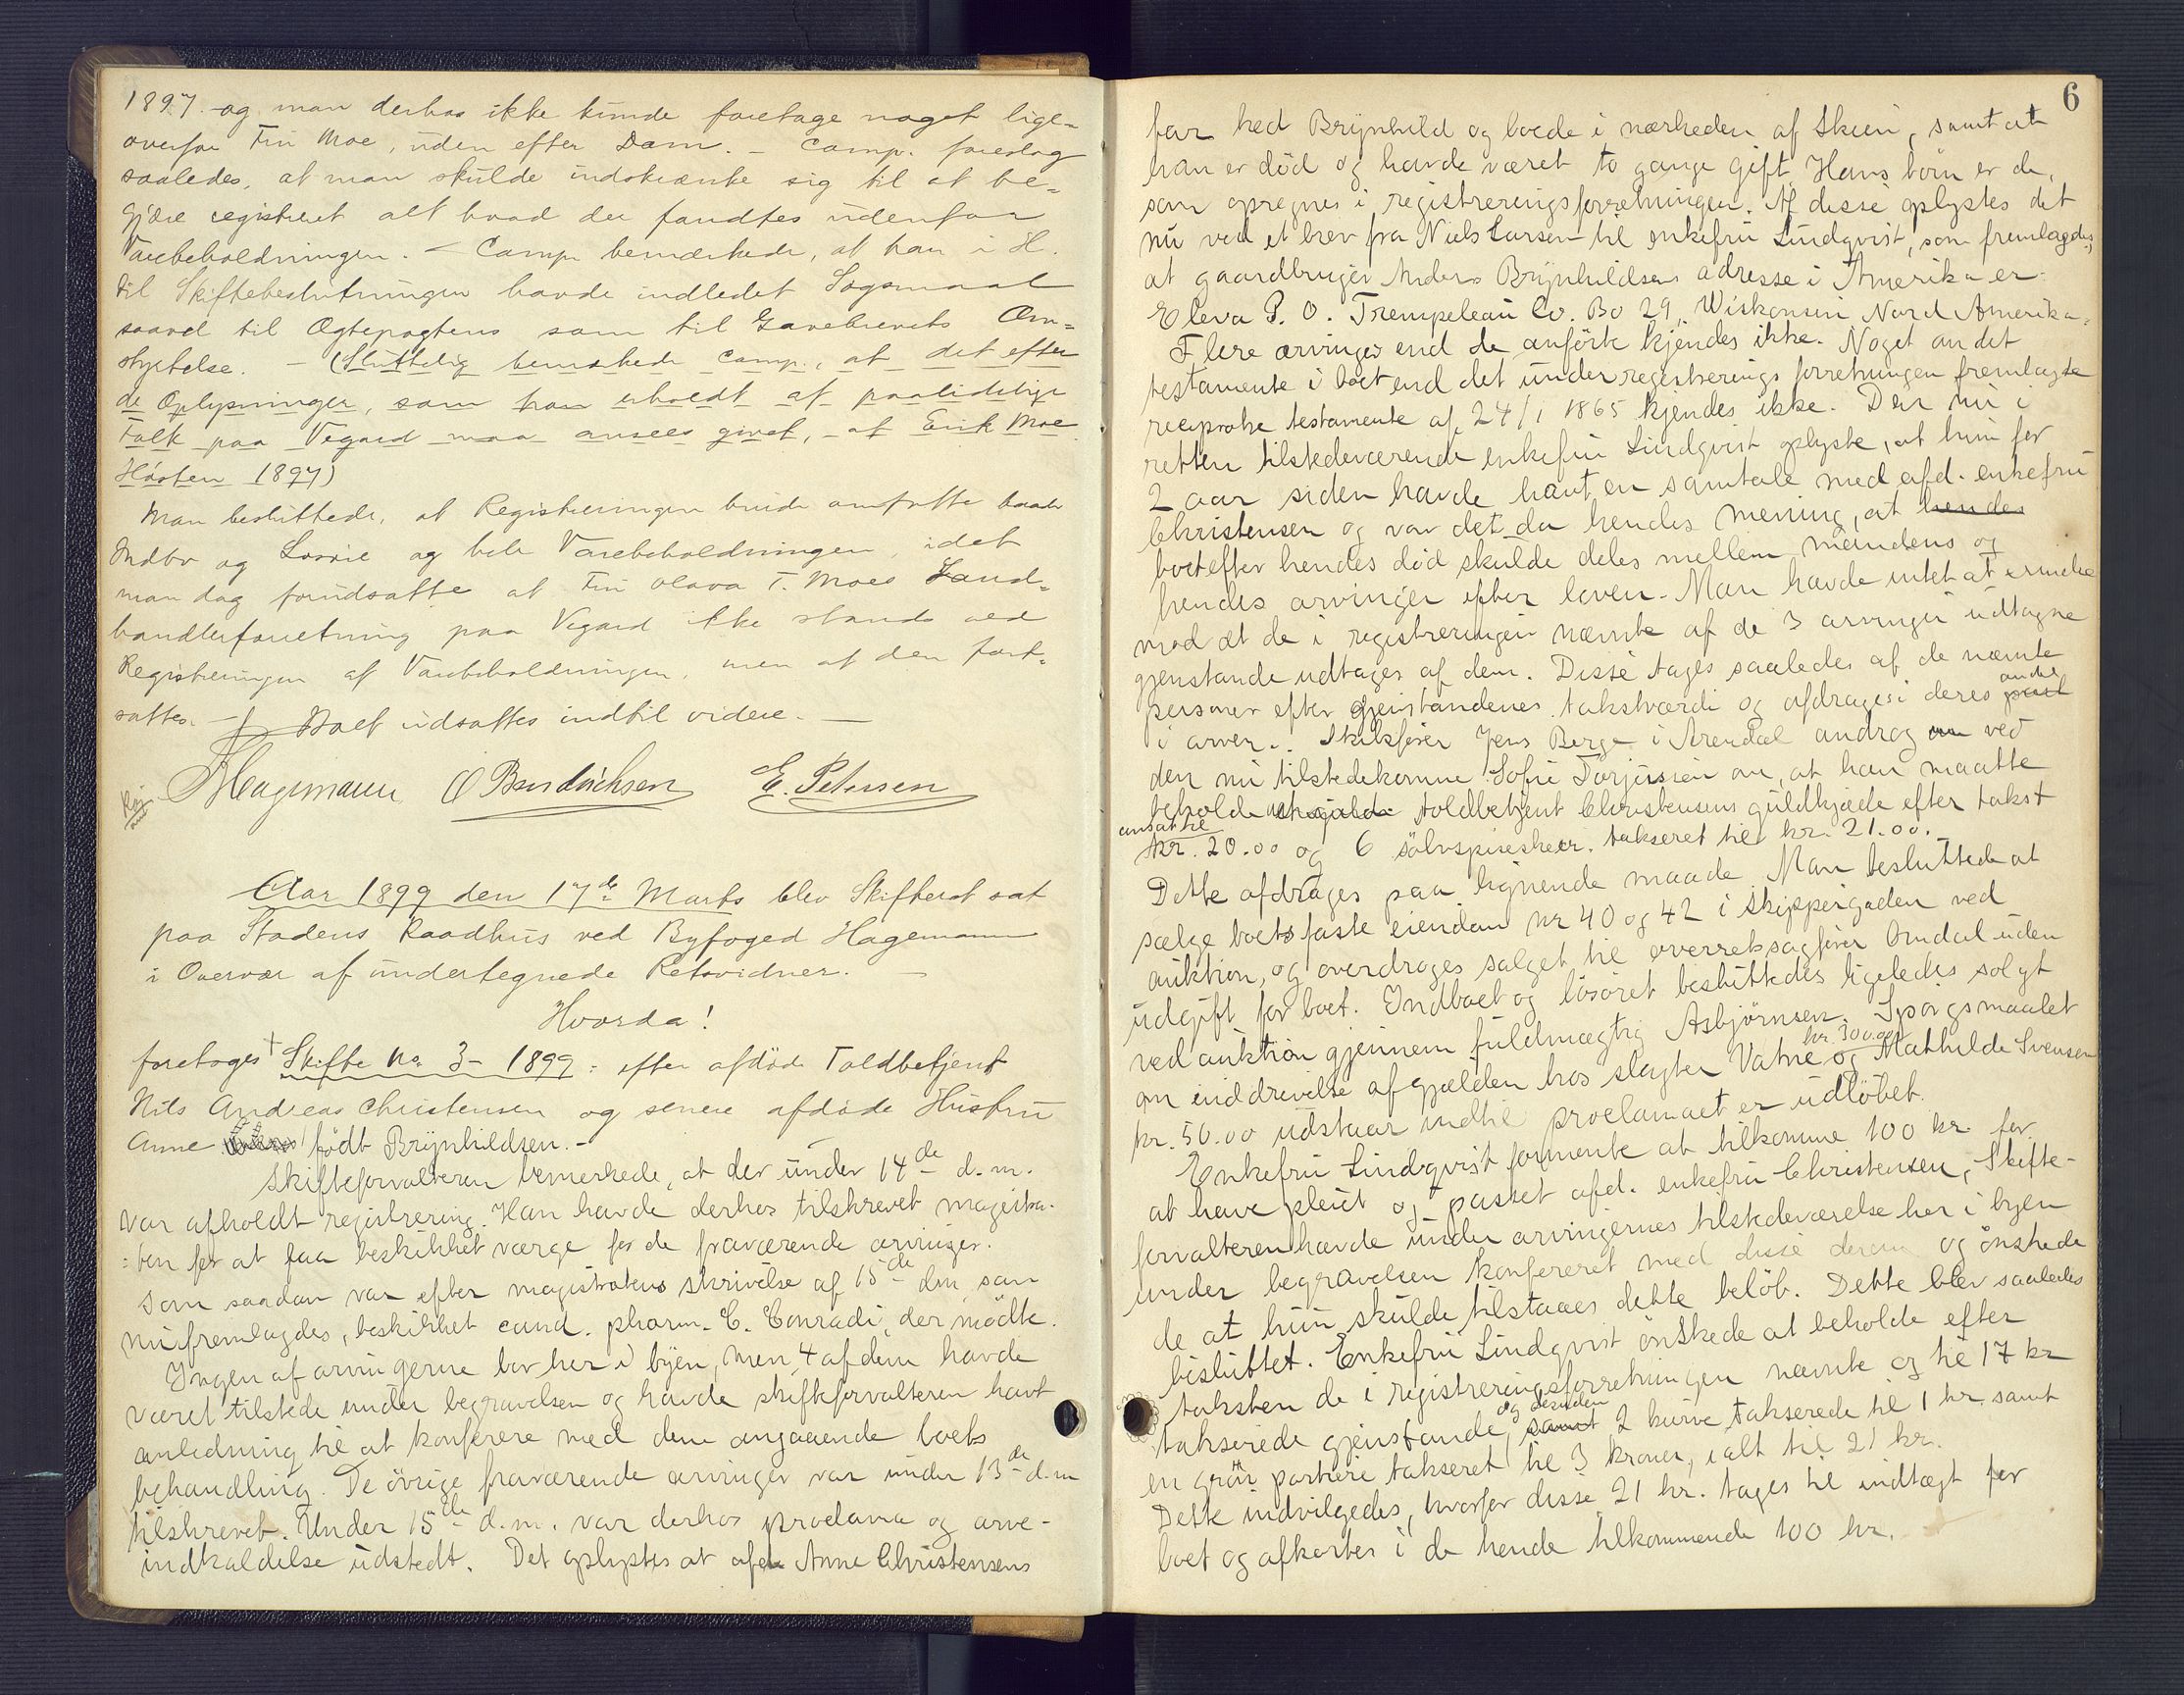 1897 - og man derhos ikke kunde foretage noget lige-
overfor Fru Moe, uden efter Dom. - Comp. foreslog
saaledes, at man skulde indskrænke sig til at be-
gjære registreret alt hvad der fandtes udenfor
Varebeholdningen. - Comp. bemærkede, at han i H.
til Skiftebeslutningen havde indledet Søgsmaal
saavel til Ægtepagtens som til Gavebrevets Om-
styrtelse. - (Sluttelig bemærkede Comp., at det efter
de Oplysninger, som han erholdt af paalidelige
Folk paa Vegard maa ansees givet, - at Erik Moe
Høsten 1897)
Man besluttede, at Registreringen burde omfatte baade
Indbo og Løsøre og hele Varebeholdningen, idet
man dog forudsatte at Fru Olava T. Moes Land-
handlerforretning paa Vegard ikke stands ved
Registreringen af Varebeholdningen, men at den fort-
sattes. - Boet udsattes indtil videre. -
Hagemann O Bendichsen E. Petersen
Aar 1899 den 17de Marts blev Skifteret sat
paa Stadens Raadhus ved Byfoged Hagemann
i Overvær af undertegnede Retsvidner. -
Hvorda!
foretoges Skifte No 3 - 1899: efter afdøde Toldbetjent
Nils Andreas Christensen og senere afdøde Hustru
Anne født Brynhildsen. -
Skifteforvalteren bemerkede, at der under 14de d.m.
var afholdt registrering. Han havde derhos tilskrevet magistra-
ten for at faa beskikket værge for de fraværende arvinger.
Som saadan var efter magistratens skrivelse af 15de dm, som
nu fremlagdes, beskikket cand. pharm. C. Conradi, der mødte.
Ingen af arvingerne bor her i byen, men 4 af dem havde
været tilstede under begravelsen og havde skifteforvalteren havt
anledning til at konferere med dem angaaende boets
behandling. De øvrige fraværende arvinger var under 13de d.m
tilskrevet. Under 15de d.m. var derhos proclama og arve-
indkaldelse udstedt. Det oplystes at afd. Anne Christensens
6
far hed Brynhild og boede i nærheden af Skien, samt at
han er død og havde været to gange gift. Hans børn er de,
som opregnes i registreringsforretningen. Af disse oplystes det
nu ved et brev fra Niels Larsen til enkefru Lindqvist, som fremlagdes,
at gaardbruger Anders Brynhildsens adresse i Amerika er
Eleva P. O. Trempeleau Co. Bo 29, Wiskonsin Nord Amerika.
Flere arvinger end de anførte kjendes ikke. Noget andet
testamente i boet end det under registrerings forretningen fremlagte
reciproke testamente af 24/1 1865 kjendes ikke. Den nu i
retten tilstedeværende enkefru Lindqvist oplyste, at hun for
2 aar siden havde havt en samtale med afd. enkefru
Christensen og var det da hendes mening, at hendes
boet efter hendes død skulde deles mellem mandens og
hendes arvinger efter loven. Man havde intet at erindre
mod at de i registreringen nævnte af de 3 arvinger udtagne
gjenstande udtages af dem. Disse tages saaledes af de nævnte
personer efter gjenstandenes takstværdi og afdrages i deres andel
i arven. Skibsfører Jens Berge i Arendal androg om ved
den nu tilstedekomne Sofie Torjusen om, at han maatte
beholde toldbetjent Christensens guldkjæde efter takst
ansat til
kr. 20.00 og 6 sølvspiseskeer. takseret til kr. 21.00. -
Dette afdrages paa lignende maade. Man besluttede at
sælge boets faste eiendom nr 40 og 42 i Skippergaden ved
auktion, og overdroges salget til overretssagfører Omdal uden
udgift for boet. Indboet og løsøret besluttedes ligeledes solgt
ved auktion gjennem fuldmægtig Asbjørnsen. Spørgsmaalet
om inddrivelse af gjælden hos slagter Vatne kr. 300.00 og Mathilde Svensen
kr. 50.00 udstaar indtil proclamaet er udløbet.
Enkefru Lindqvist formente at tilkomme 100 kr. for
at have pleiet og passet afd. enkefru Christensen, Skifte-
forvalteren havde under arvingernes tilstedeværelse her i byen
under begravelsen konfereret med disse derom og ønskede
de at hun skulde tilstaaes dette beløb. Dette blev saaledes
besluttet. Enkefru Lindqvist ønskede at beholde efter
taksten de i registreringsforretningen nævnte og til 17 kr
takserede gjenstande, og desuden samt 2 kurve takserede til 1 kr samt
en grøn portiere takseret til 3 kroner, ialt til 21 kr.
Dette indvilgedes, hvorfor disse 21 kr. tages til indtægt for
boet og afkortes i de hende tilkommende 100 kr.